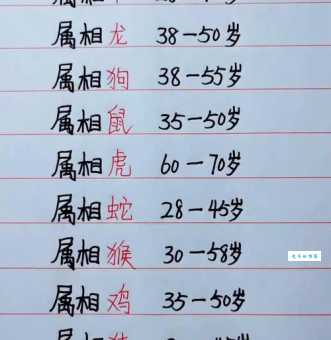 属相龙 38-50岁
属相狗 38-55岁
属相鼠 35-50岁
属相虎 60-70岁
属相蛇 28-45岁
属相猴 30-58岁
属相鸡 35-50岁